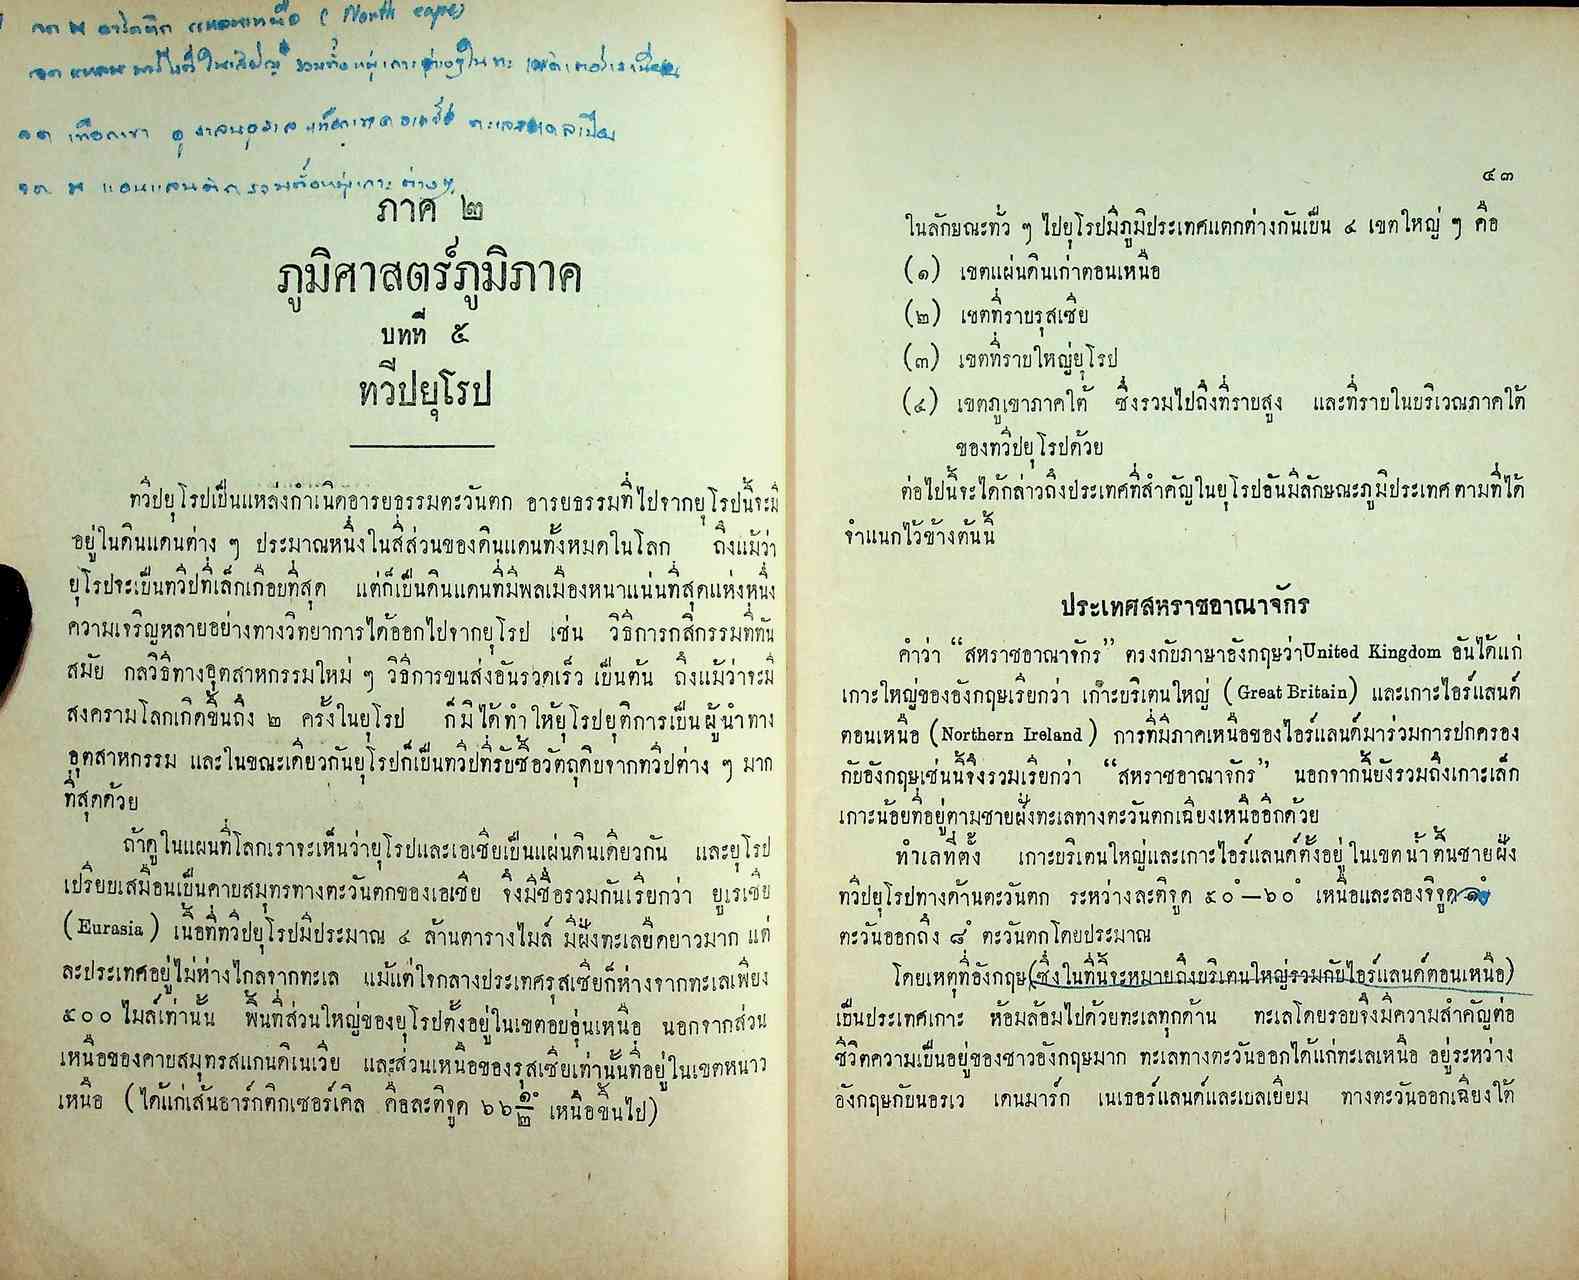 จด ม อาร์คติก แหลมเหนือ ( North cape)
จด
จด
จด ม แอนแลนติก รวมทั้งหมู่เกาะต่างๆ
ภาค ๒
ภูมิศาสตร์ภูมิภาค
บทที่ ๕
ทวีปยุโรป
ทวีปยุโรปเป็นแหล่งกำเนิดอารยธรรมตะวันตก อารยธรรมที่ไปจากยุโรปนี้จะมี
อยู่ในดินแดนต่าง ๆ ประมาณหนึ่งในสี่ส่วนของดินแดนทั้งหมดในโลก ถึงแม้ว่า
ยุโรปจะเป็นทวีปที่เล็กเกือบที่สุด แต่ก็เป็นดินแดนที่มีพลเมืองหนาแน่นที่สุดแห่งหนึ่ง
ความเจริญหลายอย่างทางวิทยาการได้ออกไปจากยุโรป เช่น วิธีการกสิกรรมที่ทัน
สมัย กลวิธีทางอุตสาหกรรมใหม่ ๆ วิธีการขนส่งอันรวดเร็ว เป็นต้น ถึงแม้ว่าจะมี
สงครามโลกเกิดขึ้นถึง ๒ ครั้งในยุโรป ก็มิได้ทำให้ยุโรปยุติการเป็นผู้นำทาง
อุตสาหกรรม และในขณะเดียวกันยุโรปก็เป็นทวีปที่รับซื้อวัตถุดิบจากทวีปต่าง ๆ มาก
ที่สุดด้วย
ถ้าดูในแผนที่โลกเราจะเห็นว่ายุโรปและเอเชียเป็นแผ่นดินเดียวกัน และยุโรป
เปรียบเสมือนเป็นคาบสมุทรทางตะวันตกของเอเชีย จึงมีชื่อรวมกันเรียกว่า ยูเรเซีย
(Eurasia) เนื้อที่ทวีปยุโรปมีประมาณ ๔ ล้านตารางไมล์ มีฝั่งทะเลยืดยาวมาก แต่
ละประเทศอยู่ไม่ห่างไกลจากทะเล แม้แต่ใจกลางประเทศรุสเซียก็ห่างจากทะเลเพียง
๕๐๐ ไมล์เท่านั้น พื้นที่ส่วนใหญ่ของยุโรปตั้งอยู่ในเขตอบอุ่นเหนือ นอกจากส่วน
เหนือของคาบสมุทรสแกนดิเนเวีย และส่วนเหนือของรุสเซียเท่านั้นที่อยู่ในเขตหนาว
เหนือ (ได้แก่เส้นอาร์กติกเซอร์เคิล คือละติจูด ๖๖๑/๒° เหนือขึ้นไป)
๔๓
ในลักษณะทั่ว ๆ ไปยุโรปมีภูมิประเทศแตกต่างกันเป็น ๔ เขตใหญ่ ๆ คือ
(๑) เขตแผ่นดินเก่าตอนเหนือ
(๒) เขตที่ราบรุสเซีย
(๓) เขตที่ราบใหญ่ยุโรป
(๔) เขตภูเขาภาคใต้ ซึ่งรวมไปถึงที่ราบสูง และที่ราบในบริเวณภาคใต้
ของทวีปยุโรปด้วย
ต่อไปนี้จะได้กล่าวถึงประเทศที่สำคัญในยุโรปอันมีลักษณะภูมิประเทศตามที่ได้
จำแนกไว้ข้างต้นนี้
ประเทศสหราชอาณาจักร
คำว่า “สหราชอาณาจักร” ตรงกับภาษาอังกฤษว่าUnited Kingdom อันได้แก่
เกาะใหญ่ของอังกฤษเรียกว่า เก๊าะบริเตนใหญ่ (Great Britain) และเกาะไอร์แลนด์
ตอนเหนือ (Northern Ireland) การที่มีภาคเหนือของไอร์แลนด์มาร่วมการปกครอง
กับอังกฤษเช่นนี้จึงรวมเรียกว่า “สหราชอาณาจักร” นอกจากนี้ยังรวมถึงเกาะเล็ก
เกาะน้อยที่อยู่ตามชายฝั่งทะเลทางตะวันตกเฉียงเหนืออีกด้วย
ทำเลที่ตั้ง เกาะบริเตนใหญ่และเกาะไอร์แลนด์ตั้งอยู่ในเขตน้ำตื้นชายฝั่ง
ทวีปยุโรปทางด้านตะวันตก ระหว่างละติจูด ๕๐°—๖๐° เหนือและลองจิจูด ๑°
ตะวันออกถึง ๘° ตะวันตกโดยประมาณ
โดยเหตุที่อังกฤษ(ซึ่งในที่นี้จะหมายถึงบริเตนใหญ่รวมกับไอร์แลนด์ตอนเหนือ)
เป็นประเทศเกาะ ห้อมล้อมไปด้วยทะเลทุกด้าน ทะเลโดยรอบจึงมีความสำคัญต่อ
ชีวิตความเป็นอยู่ของชาวอังกฤษมาก ทะเลทางตะวันออกได้แก่ทะเลเหนือ อยู่ระหว่าง
อังกฤษกับนอรเว เดนมาร์ก เนเธอร์แลนด์และเบลเยี่ยม ทางตะวันออกเฉียงใต้